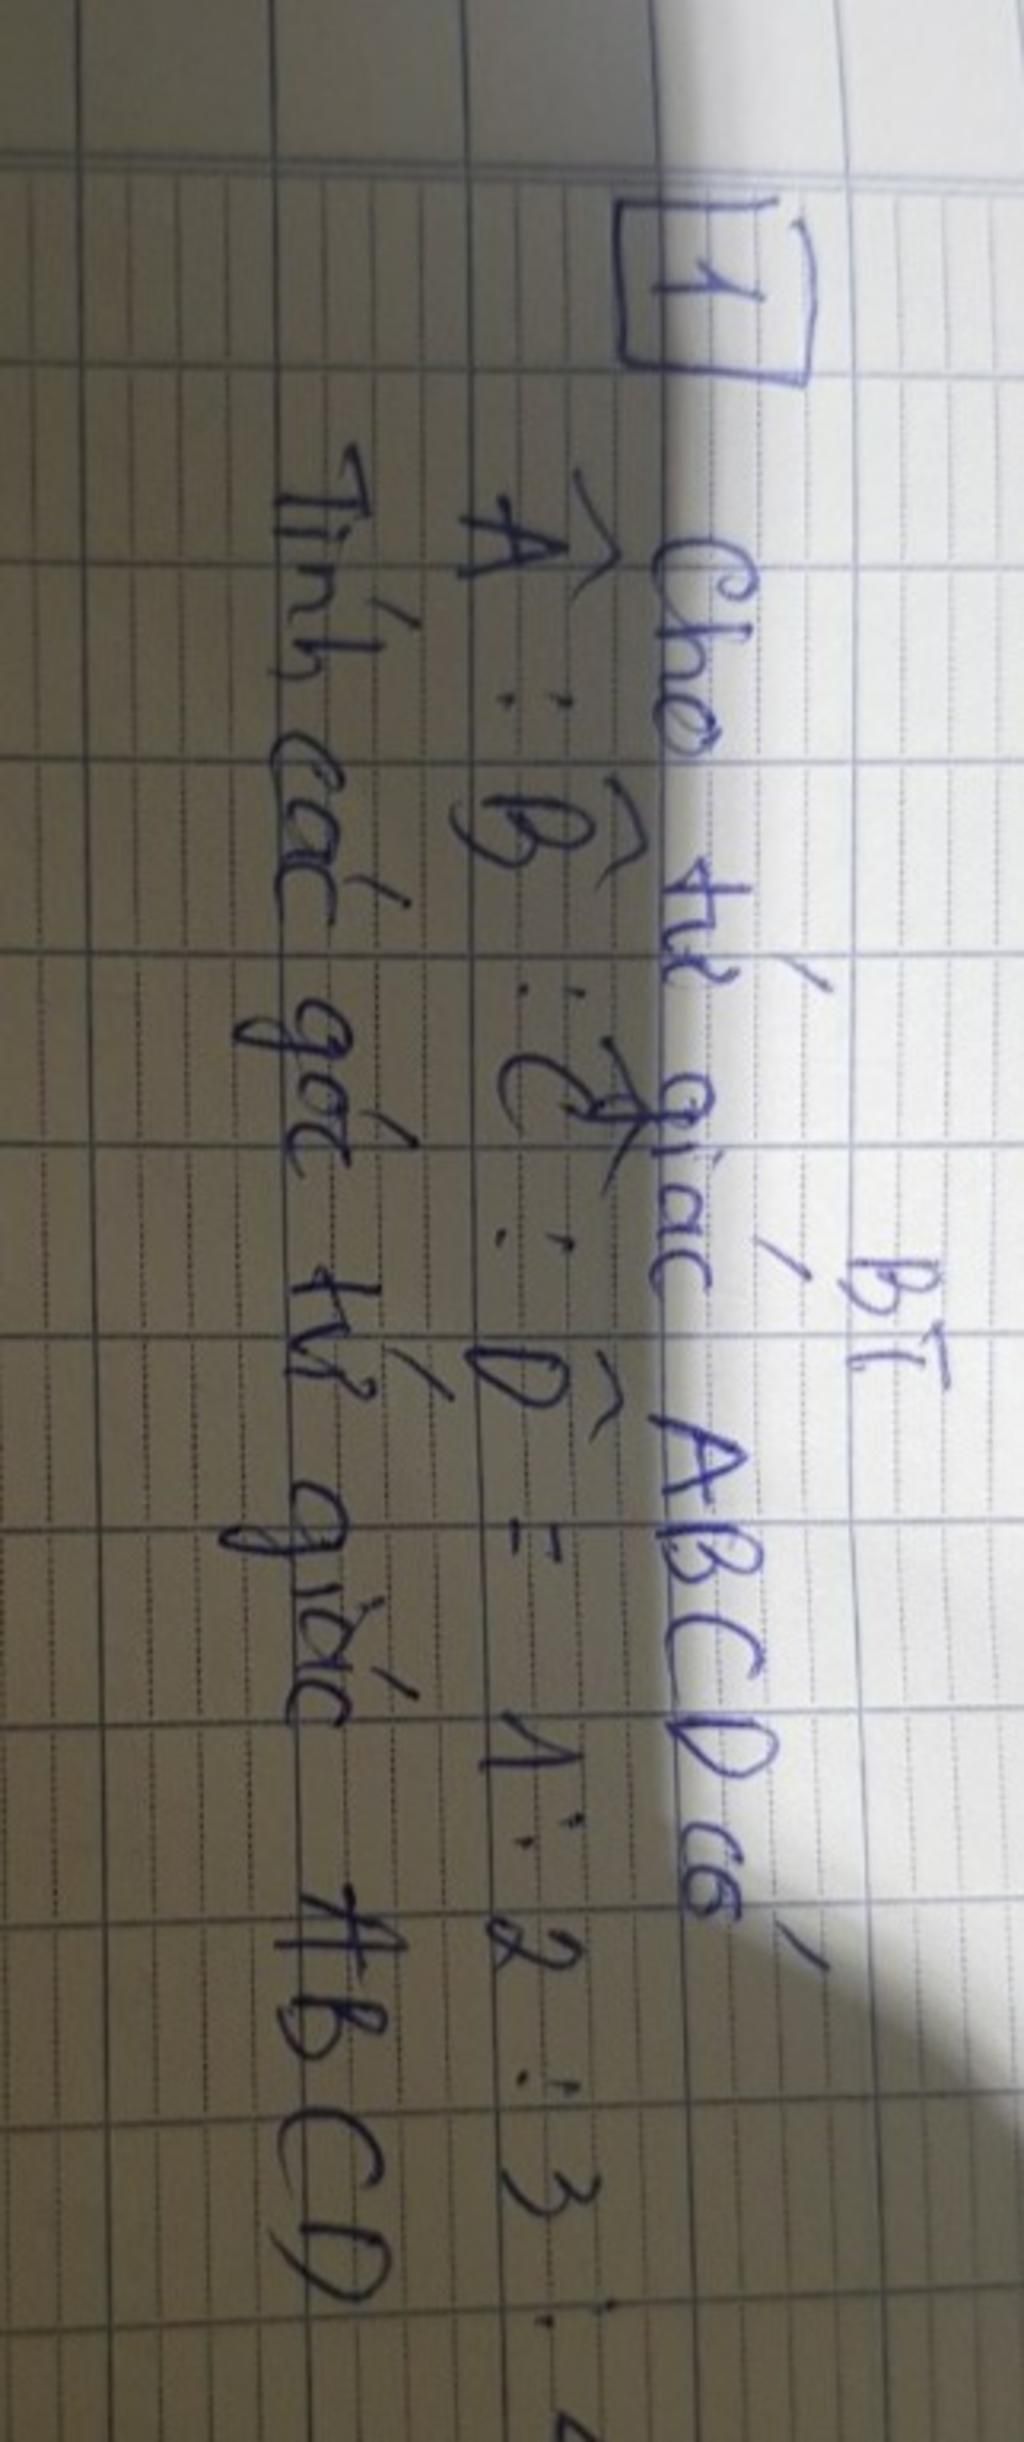 BT
1 Cho tứ giác ABCD có
Â : B̂ : Ĉ : D̂ = 1 : 2 : 3 :
Tính các góc tứ giác ABCD